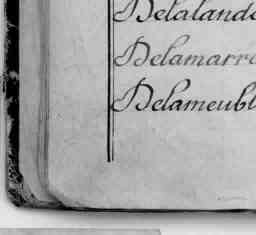 Delalande
Delamarre
Delameubl